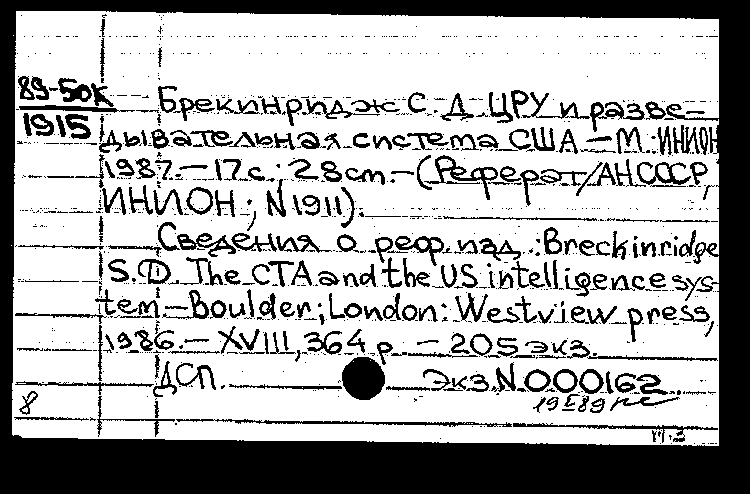 89-50К
1915
Брекинридж С. Д. ЦРУ и разве-
дывательная система США – М.: ИНИОН
1987. – 17 с.; 28 cm. – (Реферат/АН СССР,
ИНИОН; N 1911).
Сведения о реф. изд.: Breckinridge
S.D. The CTA and the US intelligence sys-
tem – Boulder; London: Westview press,
1986. – XVIII, 364 p. – 205 экз.
ДСП. Экз. N.000162
8 19 I 89